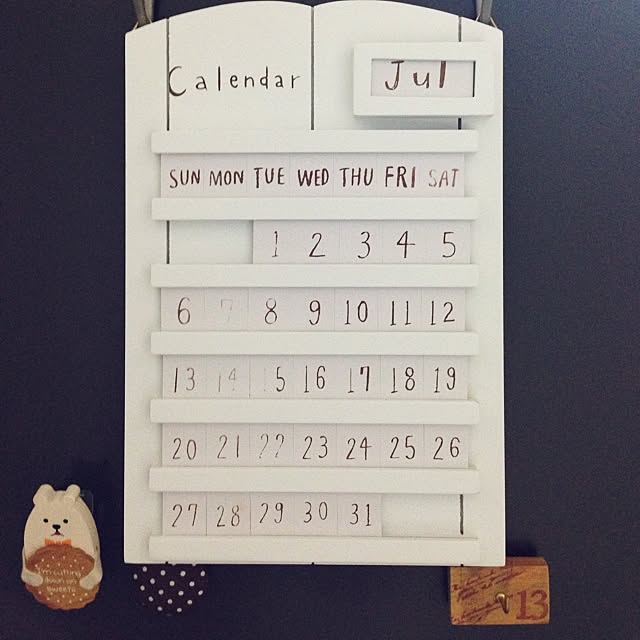 Calendar
Jul
SUN MON TUE WED THU FRI SAT
1 2 3 4 5
6 7 8 9 10 11 12
13 14 15 16 17 18 19
20 21 22 23 24 25 26
27 28 29 30 31
I'm cutting
down on
sweets
13